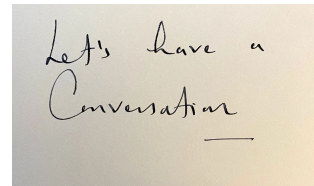 Let's have a
Conversation